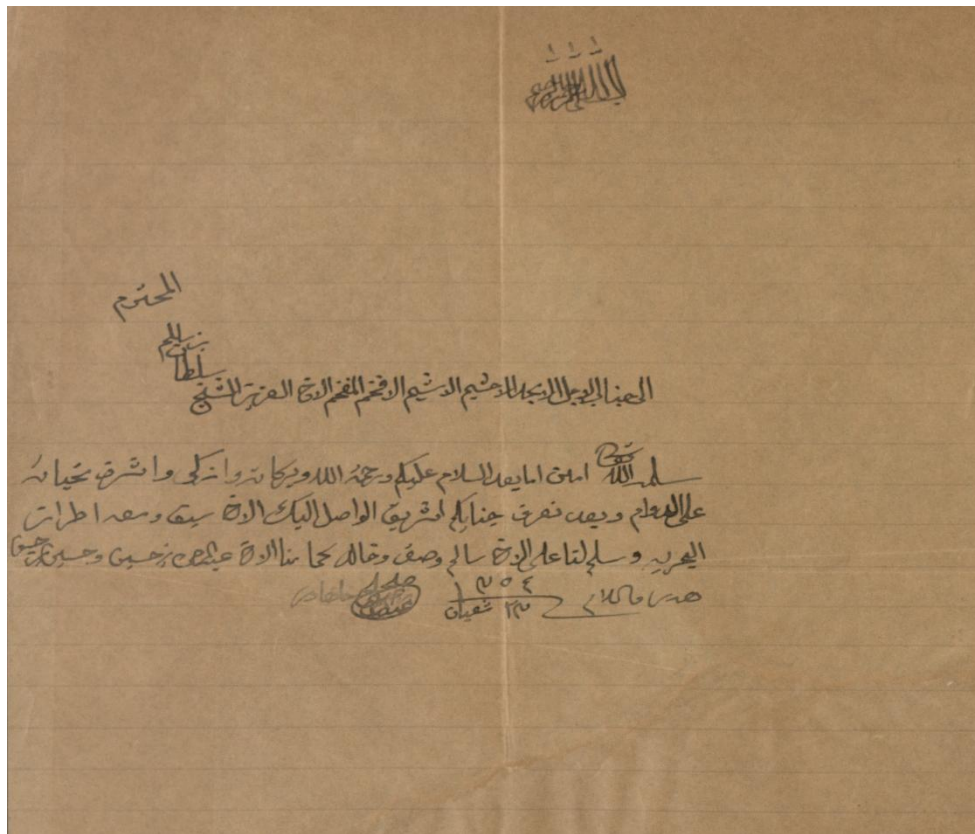 بسم الله الرحمن الرحيم
المحترم
سلطان بن سالم
الى جناب الاجل الامجد الاحشم الاشيم الافخم المفخم الاخ العزيز الشيخ
سلمه الله تعالى امين اما بعد السلام عليكم ورحمة الله وبركاته وازكى واشرف تحياته
على الدوام وبعد نعرف جنابكم لشريف الواصل اليك الاخ سيف ومعه
البحريه وسلم لنا على الاخ سالم وصقر وخالد كما منا الاخ عبدالرحمن بن حسين وحسين بن
هذا والسلام ٢٣ شعبان ١٣٥٤